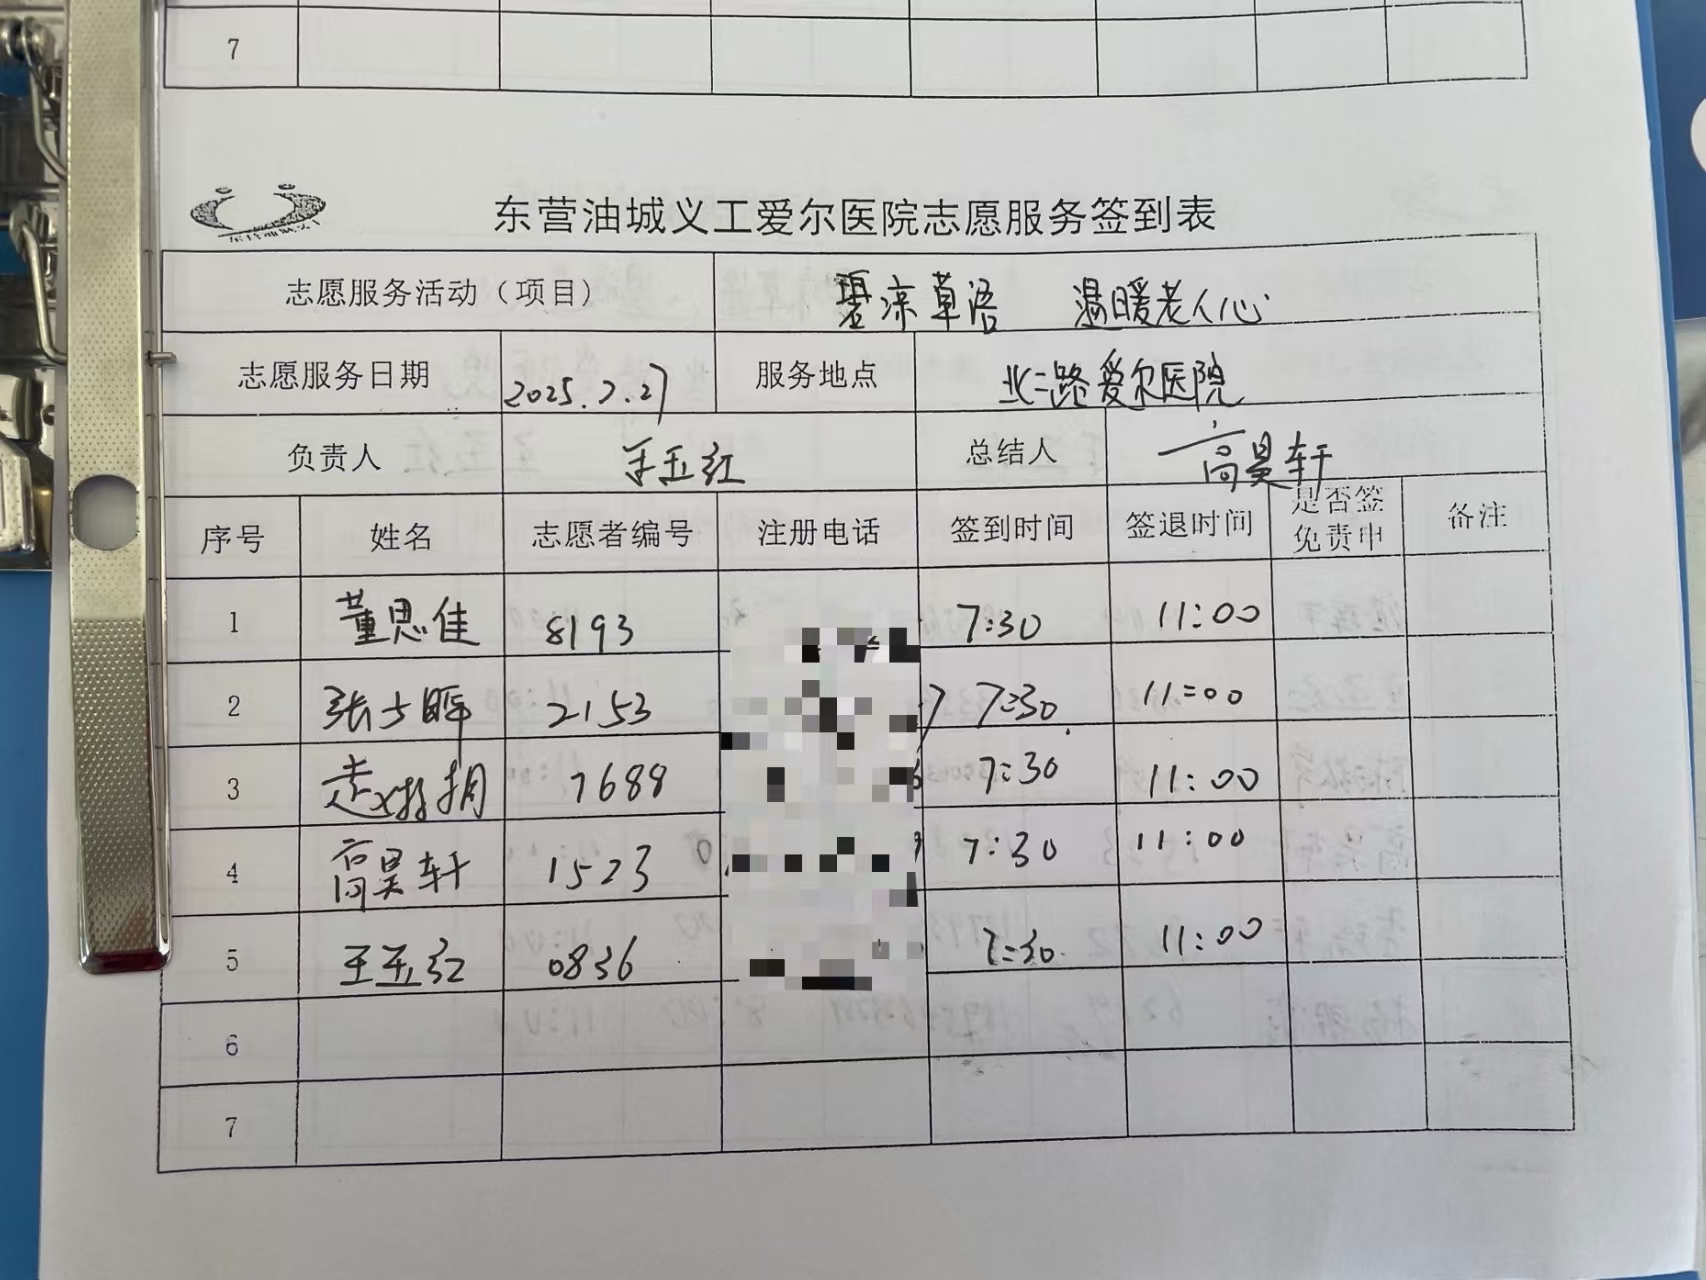 7
东营油城义工爱尔医院志愿服务签到表
志愿服务活动（项目） 草语 温暖老人心
志愿服务日期 2025.7.27 服务地点 北二路爱尔医院
负责人 王玉红 总结人 高昊轩
序号 姓名 志愿者编号 注册电话 签到时间 签退时间 是否签免责申 备注
1 董思佳 8193 7:30 11:00
2 张士晖 2153 7:30 11:00
3 7688 7:30 11:00
4 高昊轩 1523 7:30 11:00
5 王玉红 0836 7:30 11:00
6
7